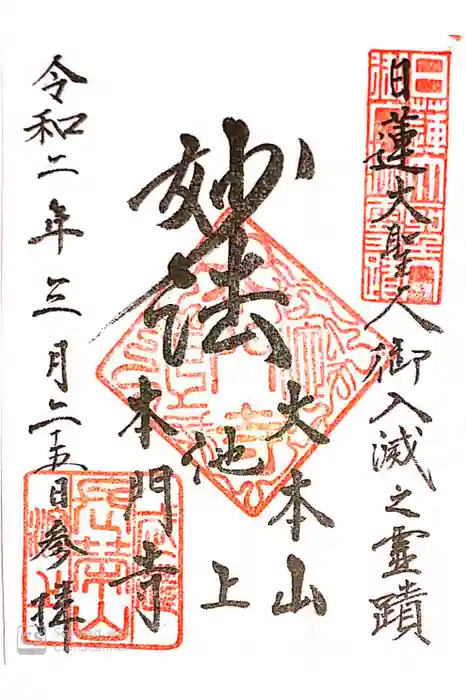 日蓮大聖人御入滅之霊蹟
妙法
大本山
池上
本門寺
令和二年三月二十五日参拝